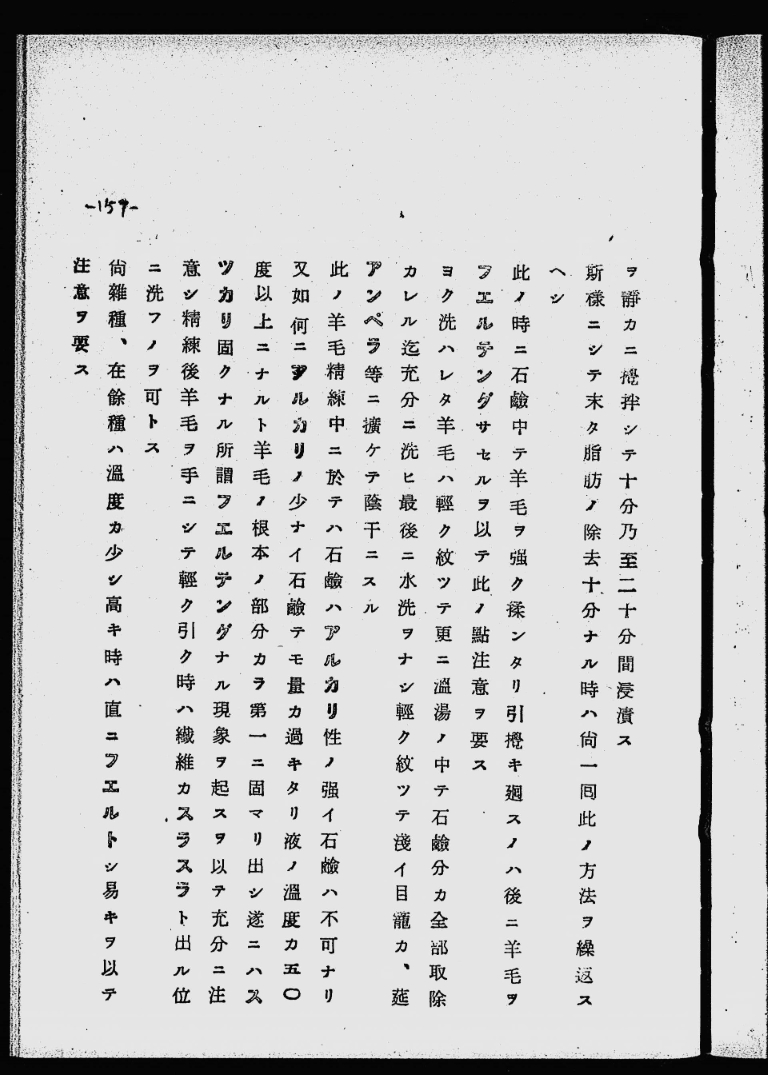 ヲ靜カニ攪拌シテ十分乃至二十分間浸漬ス
斯樣ニシテ末タ脂肪ノ除去十分ナル時ハ尙一囘此ノ方法ヲ繰返ス
ヘシ
此ノ時ニ石鹼中テ羊毛ヲ强ク揉ンタリ引攪キ廻スノハ後ニ羊毛ヲ
フエルテングサセルヲ以テ此ノ點注意ヲ要ス
ヨク洗ハレタ羊毛ハ輕ク紋ツテ更ニ溫湯ノ中テ石鹼分カ全部取除
カレル迄充分ニ洗ヒ最後ニ水洗ヲナシ輕ク紋ツテ淺イ目籠カ、莚
アンペラ等ニ擴ケテ陰干ニスル
此ノ羊毛精練中ニ於テハ石鹼ハアルカリ性ノ强イ石鹼ハ不可ナリ
又如何ニアルカリノ少ナイ石鹼テモ量カ過キタリ液ノ溫度カ五〇
度以上ニナルト羊毛ノ根本ノ部分カラ第一ニ固マリ出シ遂ニハス
ツカリ固クナル所謂フエルテングナル現象ヲ起スヲ以テ充分ニ注
意シ精練後羊毛ヲ手ニシテ輕ク引ク時ハ纎維カスラスラト出ル位
ニ洗フノヲ可トス
尙雜種、在餘種ハ溫度カ少シ高キ時ハ直ニフエルトシ易キヲ以テ
注意ヲ要ス
-159-